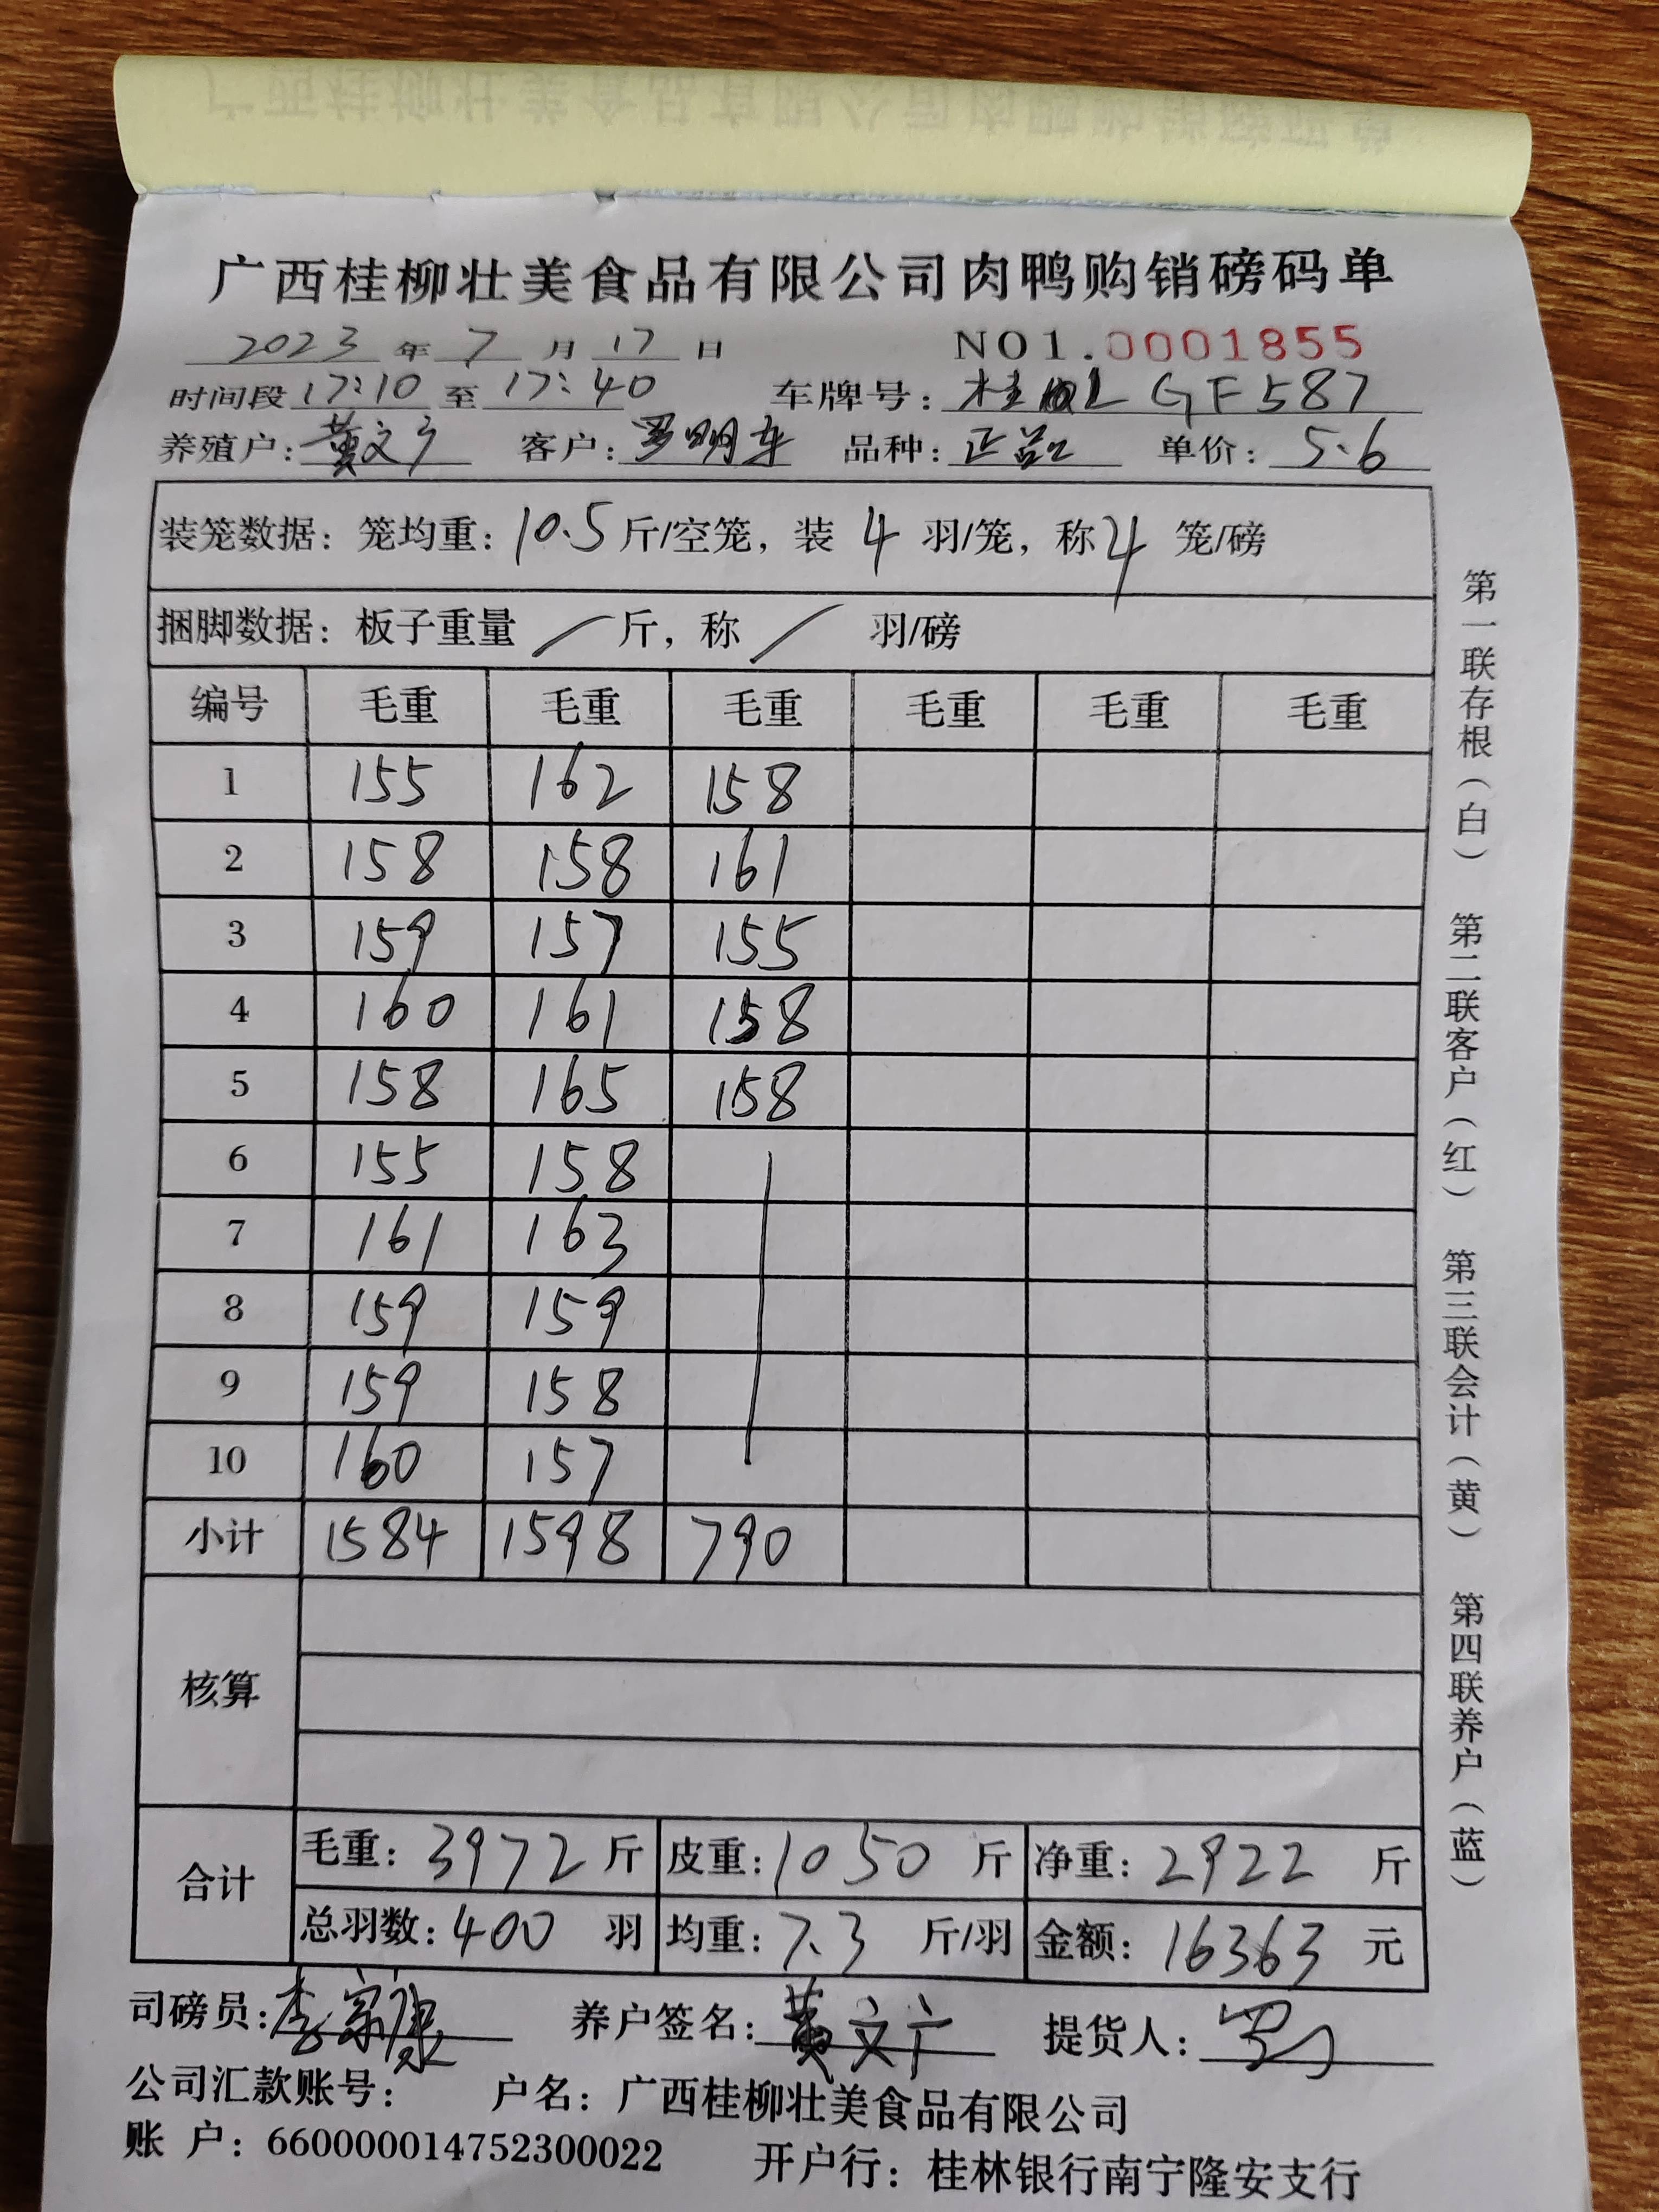 广西桂柳壮美食品有限公司肉鸭购销磅码单
2023年7月17日 NO1.0001855
时间段17:10至17:40 车牌号:桂LGF587
养殖户:黄文广 客户:罗明车 品种: 单价:5.6
装笼数据:笼均重:10.5斤/空笼,装4羽/笼,称4笼/磅
捆脚数据:板子重量/斤,称/羽/磅
编号 毛重 毛重 毛重 毛重 毛重 毛重
1 155 162 158
2 158 158 161
3 159 157 155
4 160 161 158
5 158 165 158
6 155 158
7 161 163
8 159 159
9 159 158
10 160 157
小计 1584 1598 790
核算
合计 毛重:3972斤 皮重:1050斤 净重:2922斤
总羽数:400羽 均重:7.3斤/羽 金额:16363元
司磅员:李宗康 养户签名:黄文广 提货人:罗
公司汇款账号: 户名:广西桂柳壮美食品有限公司
账 户:660000014752300022 开户行:桂林银行南宁隆安支行
第一联存根(白) 第二联客户(红) 第三联会计(黄) 第四联养户(蓝)